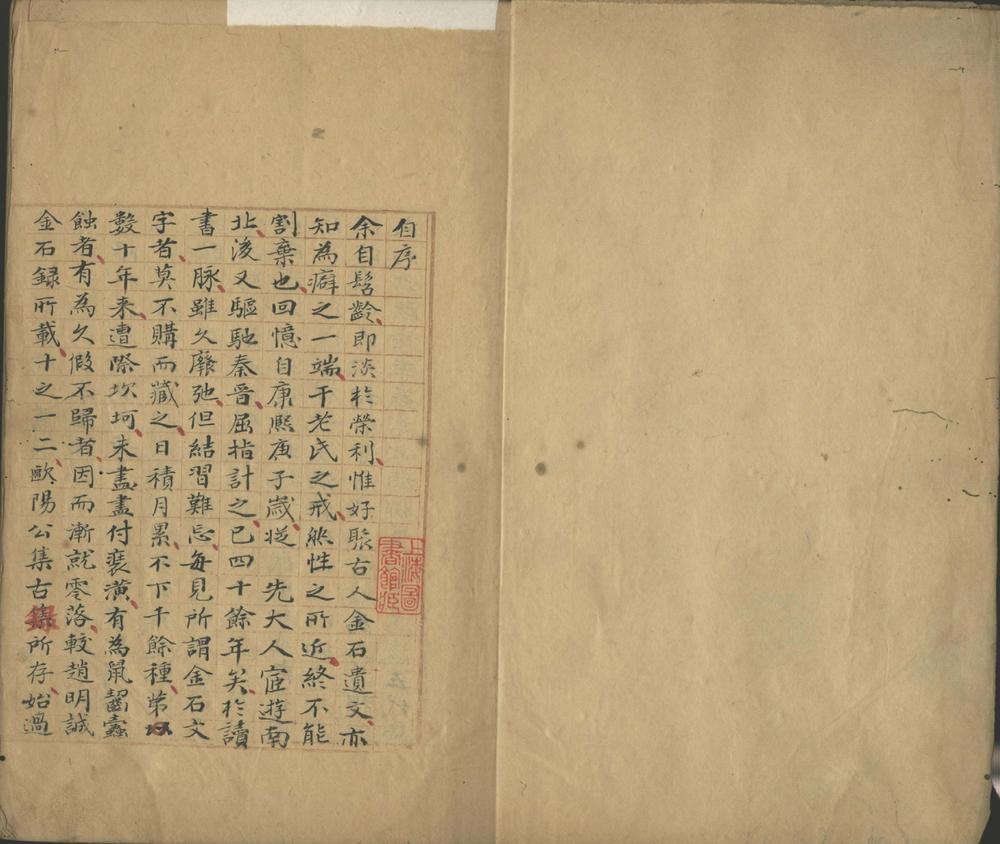 自序
余自髫齡即淡於榮利惟好聚古人金石遺文亦
知為癖之一端干老氏之戒然性之所近終不能
割棄也回憶自康熙庚子歲從先大人宦遊南
北後又驅馳秦晉屈指計之已四十餘年矣於讀
書一脉雖久廢弛但結習難忘每見所謂金石文
字者莫不購而藏之日積月累不下千餘種第以
數十年来遭際坎坷未盡盡付裹潢有為鼠齧蠹
蝕者有為久假不歸者因而漸就零落較趙明誠
金石録所載十之一二歐陽公集古錄所存始過
上海圖書館臧